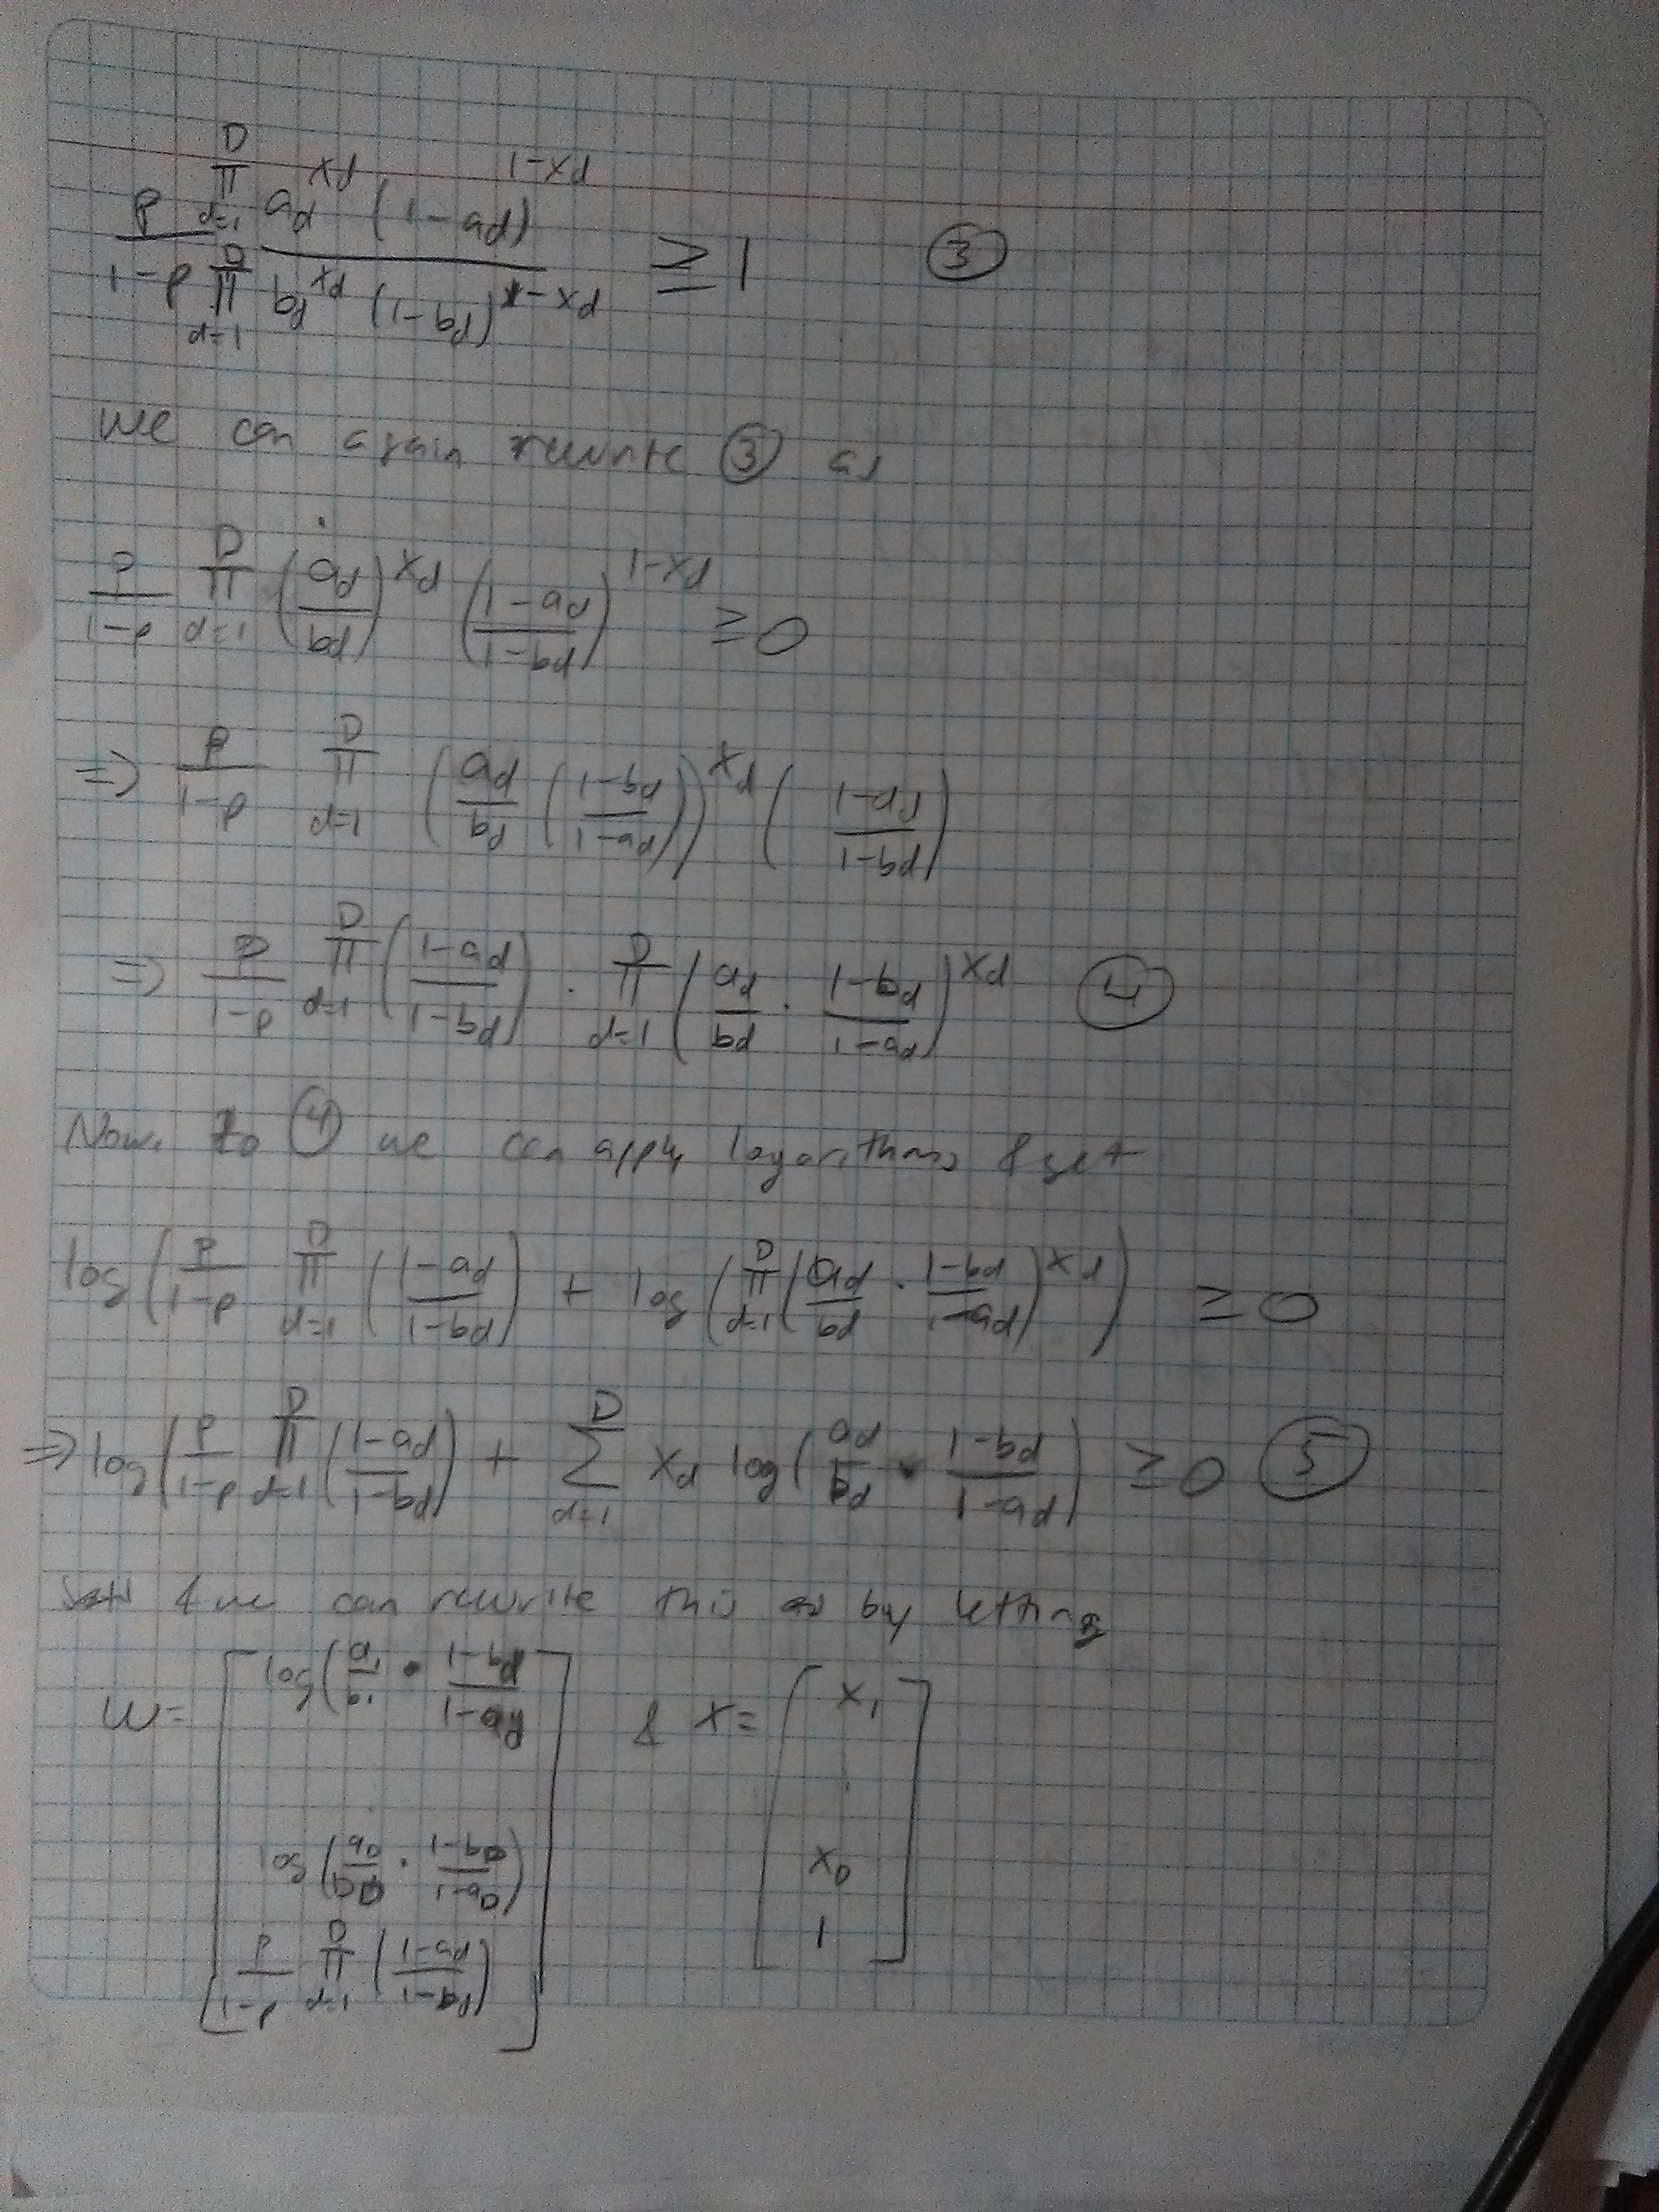 \frac{p}{1-p} \frac{\prod_{d=1}^{D} a_d^{x_d} (1-a_d)^{1-x_d}}{\prod_{d=1}^{D} b_d^{x_d} (1-b_d)^{1-x_d}} ≥ 1 ③
we can again rewrite ③ as
\frac{p}{1-p} \prod_{d=1}^{D} (\frac{a_d}{b_d})^{x_d} (\frac{1-a_d}{1-b_d})^{1-x_d} ≥ 0
=> \frac{p}{1-p} \prod_{d=1}^{D} (\frac{a_d}{b_d} (\frac{1-b_d}{1-a_d}))^{x_d} (\frac{1-a_d}{1-b_d})
=> \frac{p}{1-p} \prod_{d=1}^{D} (\frac{1-a_d}{1-b_d}) · \prod_{d=1}^{D} (\frac{a_d}{b_d} · \frac{1-b_d}{1-a_d})^{x_d} ④
Now, to ④ we can apply logarithms & get
log(\frac{p}{1-p} \prod_{d=1}^{D} (\frac{1-a_d}{1-b_d}) + log(\prod_{d=1}^{D} (\frac{a_d}{b_d} · \frac{1-b_d}{1-a_d})^{x_d}) ≥ 0
=> log(\frac{p}{1-p} \prod_{d=1}^{D} (\frac{1-a_d}{1-b_d}) + \sum_{d=1}^{D} x_d log(\frac{a_d}{b_d} · \frac{1-b_d}{1-a_d}) ≥ 0 ⑤
& we can rewrite this by letting
w = [ log(\frac{a_1}{b_1} · \frac{1-b_1}{1-a_1} & x = [ x_1
.
log(\frac{a_D}{b_D} · \frac{1-b_D}{1-a_D}) x_D
\frac{p}{1-p} \prod_{d=1}^{D} (\frac{1-a_d}{1-b_d}) ] 1 ]